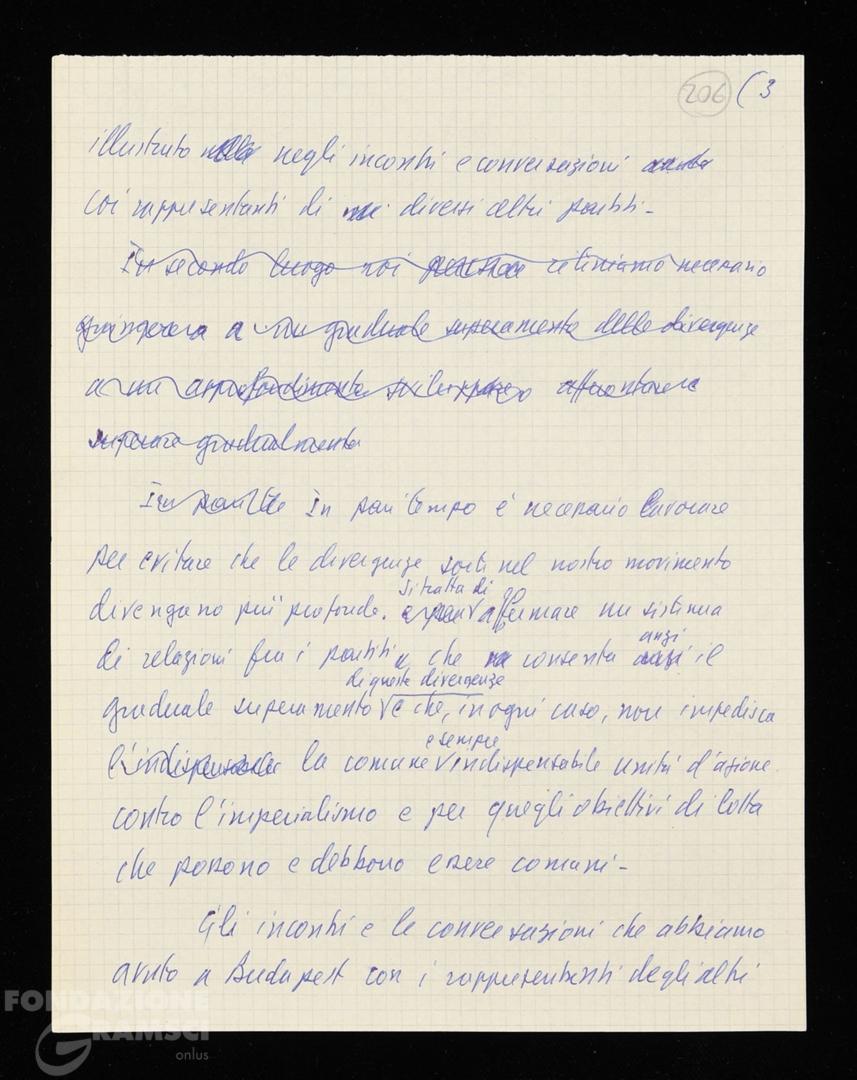 206 (3
illustrato negli incontri e conversazioni
coi rappresentanti di diversi altri partiti -
In secondo luogo noi riteniamo necessario
giungere a un graduale superamento delle divergenze
a un approfondimento
superare gradualmente
In pari tempo è necessario lavorare
per evitare che le divergenze sorte nel nostro movimento
si tratta di
divengano più profonde. affermare un sistema
anzi
di relazioni fra i partiti che consenta il
di queste divergenze
graduale superamento e che, in ogni caso, non impedisca
e sempre
l'indispensabile la comune indispensabile unità d'azione
contro l'imperialismo e per quegli obiettivi di lotta
che possono e debbono essere comuni -
Gli incontri e le conversazioni che abbiamo
avuto a Budapest con i rappresentanti degli altri
FONDAZIONE
GRAMSCI
onlus